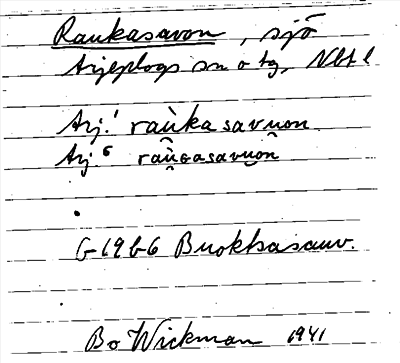 Raukasavon, sjö
Arjeplogs sn o tg, Nbt l
Arj.¹ raùkasavuon
Arj.⁶
G-1966 Buokhasauv.
Bo Wickman 1941